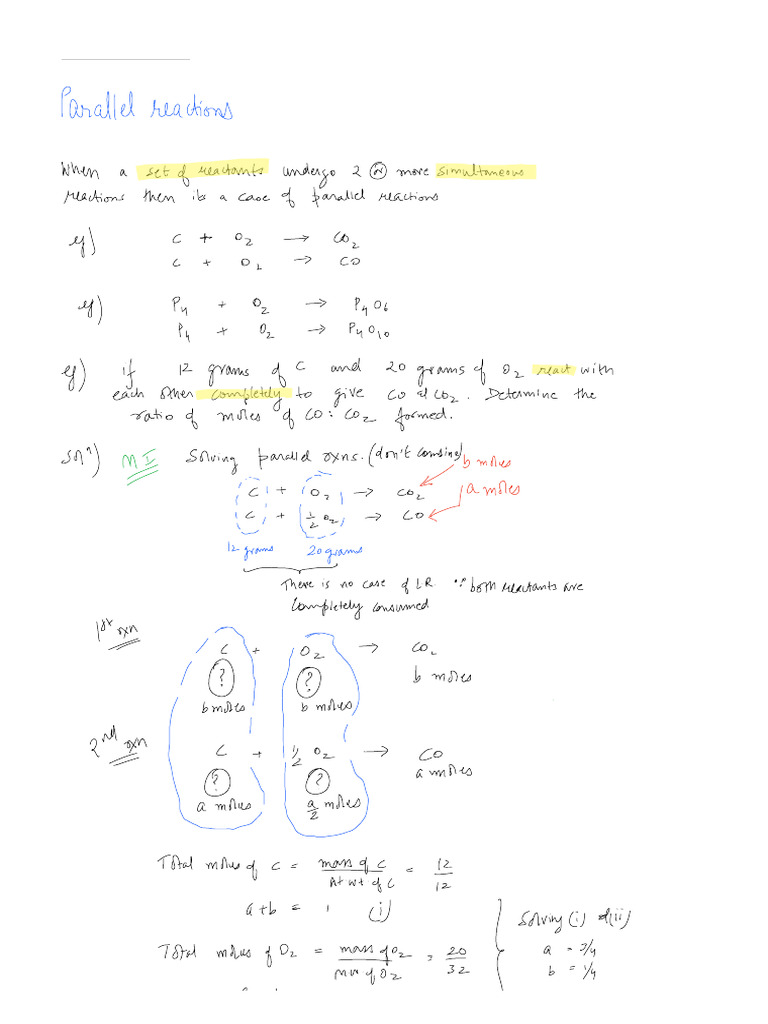 Parallel reactions
When a set of reactants undergo 2 or more simultaneous
reactions then its a case of parallel reactions
eg) C + O₂ → CO₂
C + O₂ → CO
eg) P₄ + O₂ → P₄O₆
P₄ + O₂ → P₄O₁₀
eg) If 12 grams of C and 20 grams of O₂ react with
each other completely to give CO & CO₂. Determine the
ratio of moles of CO : CO₂ formed.
Solⁿ) M I Solving parallel rxns. (don't combine)
b moles
C + O₂ → CO₂
a moles
C + 1/2 O₂ → CO
12 grams 20 grams
There is no case of LR ∵ both reactants are
completely consumed
1st rxn
C + O₂ → CO₂
? ? b moles
b moles b moles
2nd rxn
C + 1/2 O₂ → CO
? ? a moles
a moles a/2 moles
Total moles of C = mass of C / At wt of C = 12/12
a+b = 1 (i)
Total moles of O₂ = mass of O₂ / MW of O₂ = 20/32
Solving (i) & (ii)
a = 3/4
b = 1/4